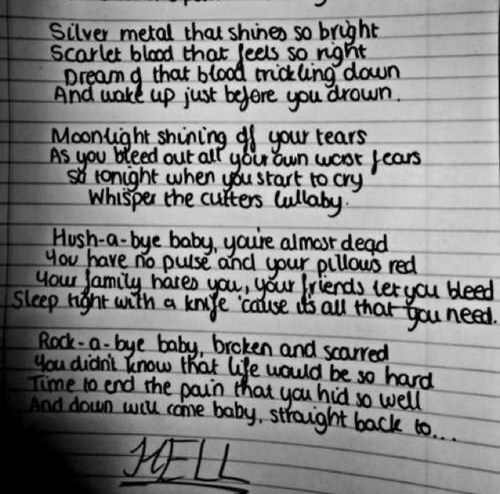 Silver metal that shines so bright
Scarlet blood that feels so right
Dream of that blood trickling down
And wake up just before you drown.
Moonlight shining off your tears
As you bleed out all your own worst fears
so tonight when you start to cry
Whisper the cutters lullaby.
Hush-a-bye baby, you're almost dead
You have no pulse and your pillows red
Your family hates you, your friends let you bleed
Sleep tight with a knife 'cause its all that you need.
Rock-a-bye baby, broken and scarred
You didn't know that life would be so hard
Time to end the pain that you hid so well
And down will come baby, straight back to...
HELL